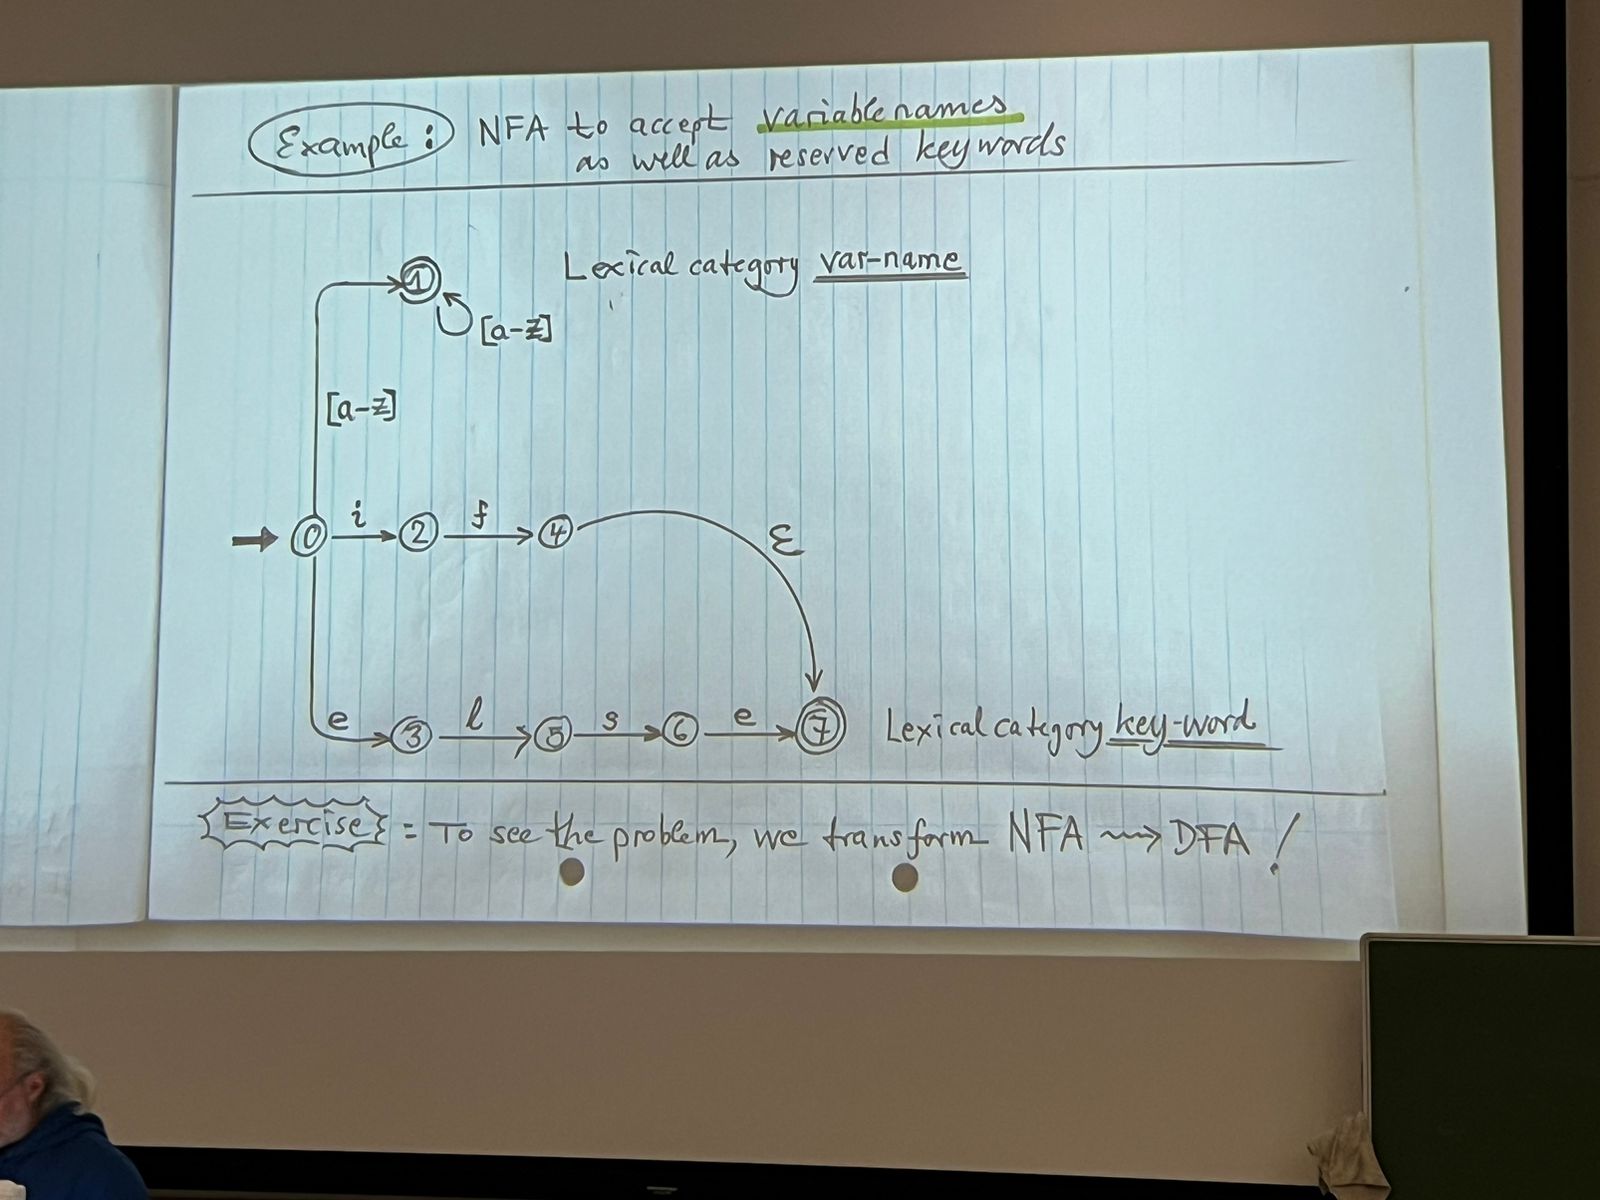 Example: NFA to accept variable names
as well as reserved keywords
1
Lexical category var-name
[a-z]
[a-z]
0 i 2 f 4
ε
e 3 l 5 s 6 e 7 Lexical category key-word
Exercise = To see the problem, we transform NFA ⇝ DFA !